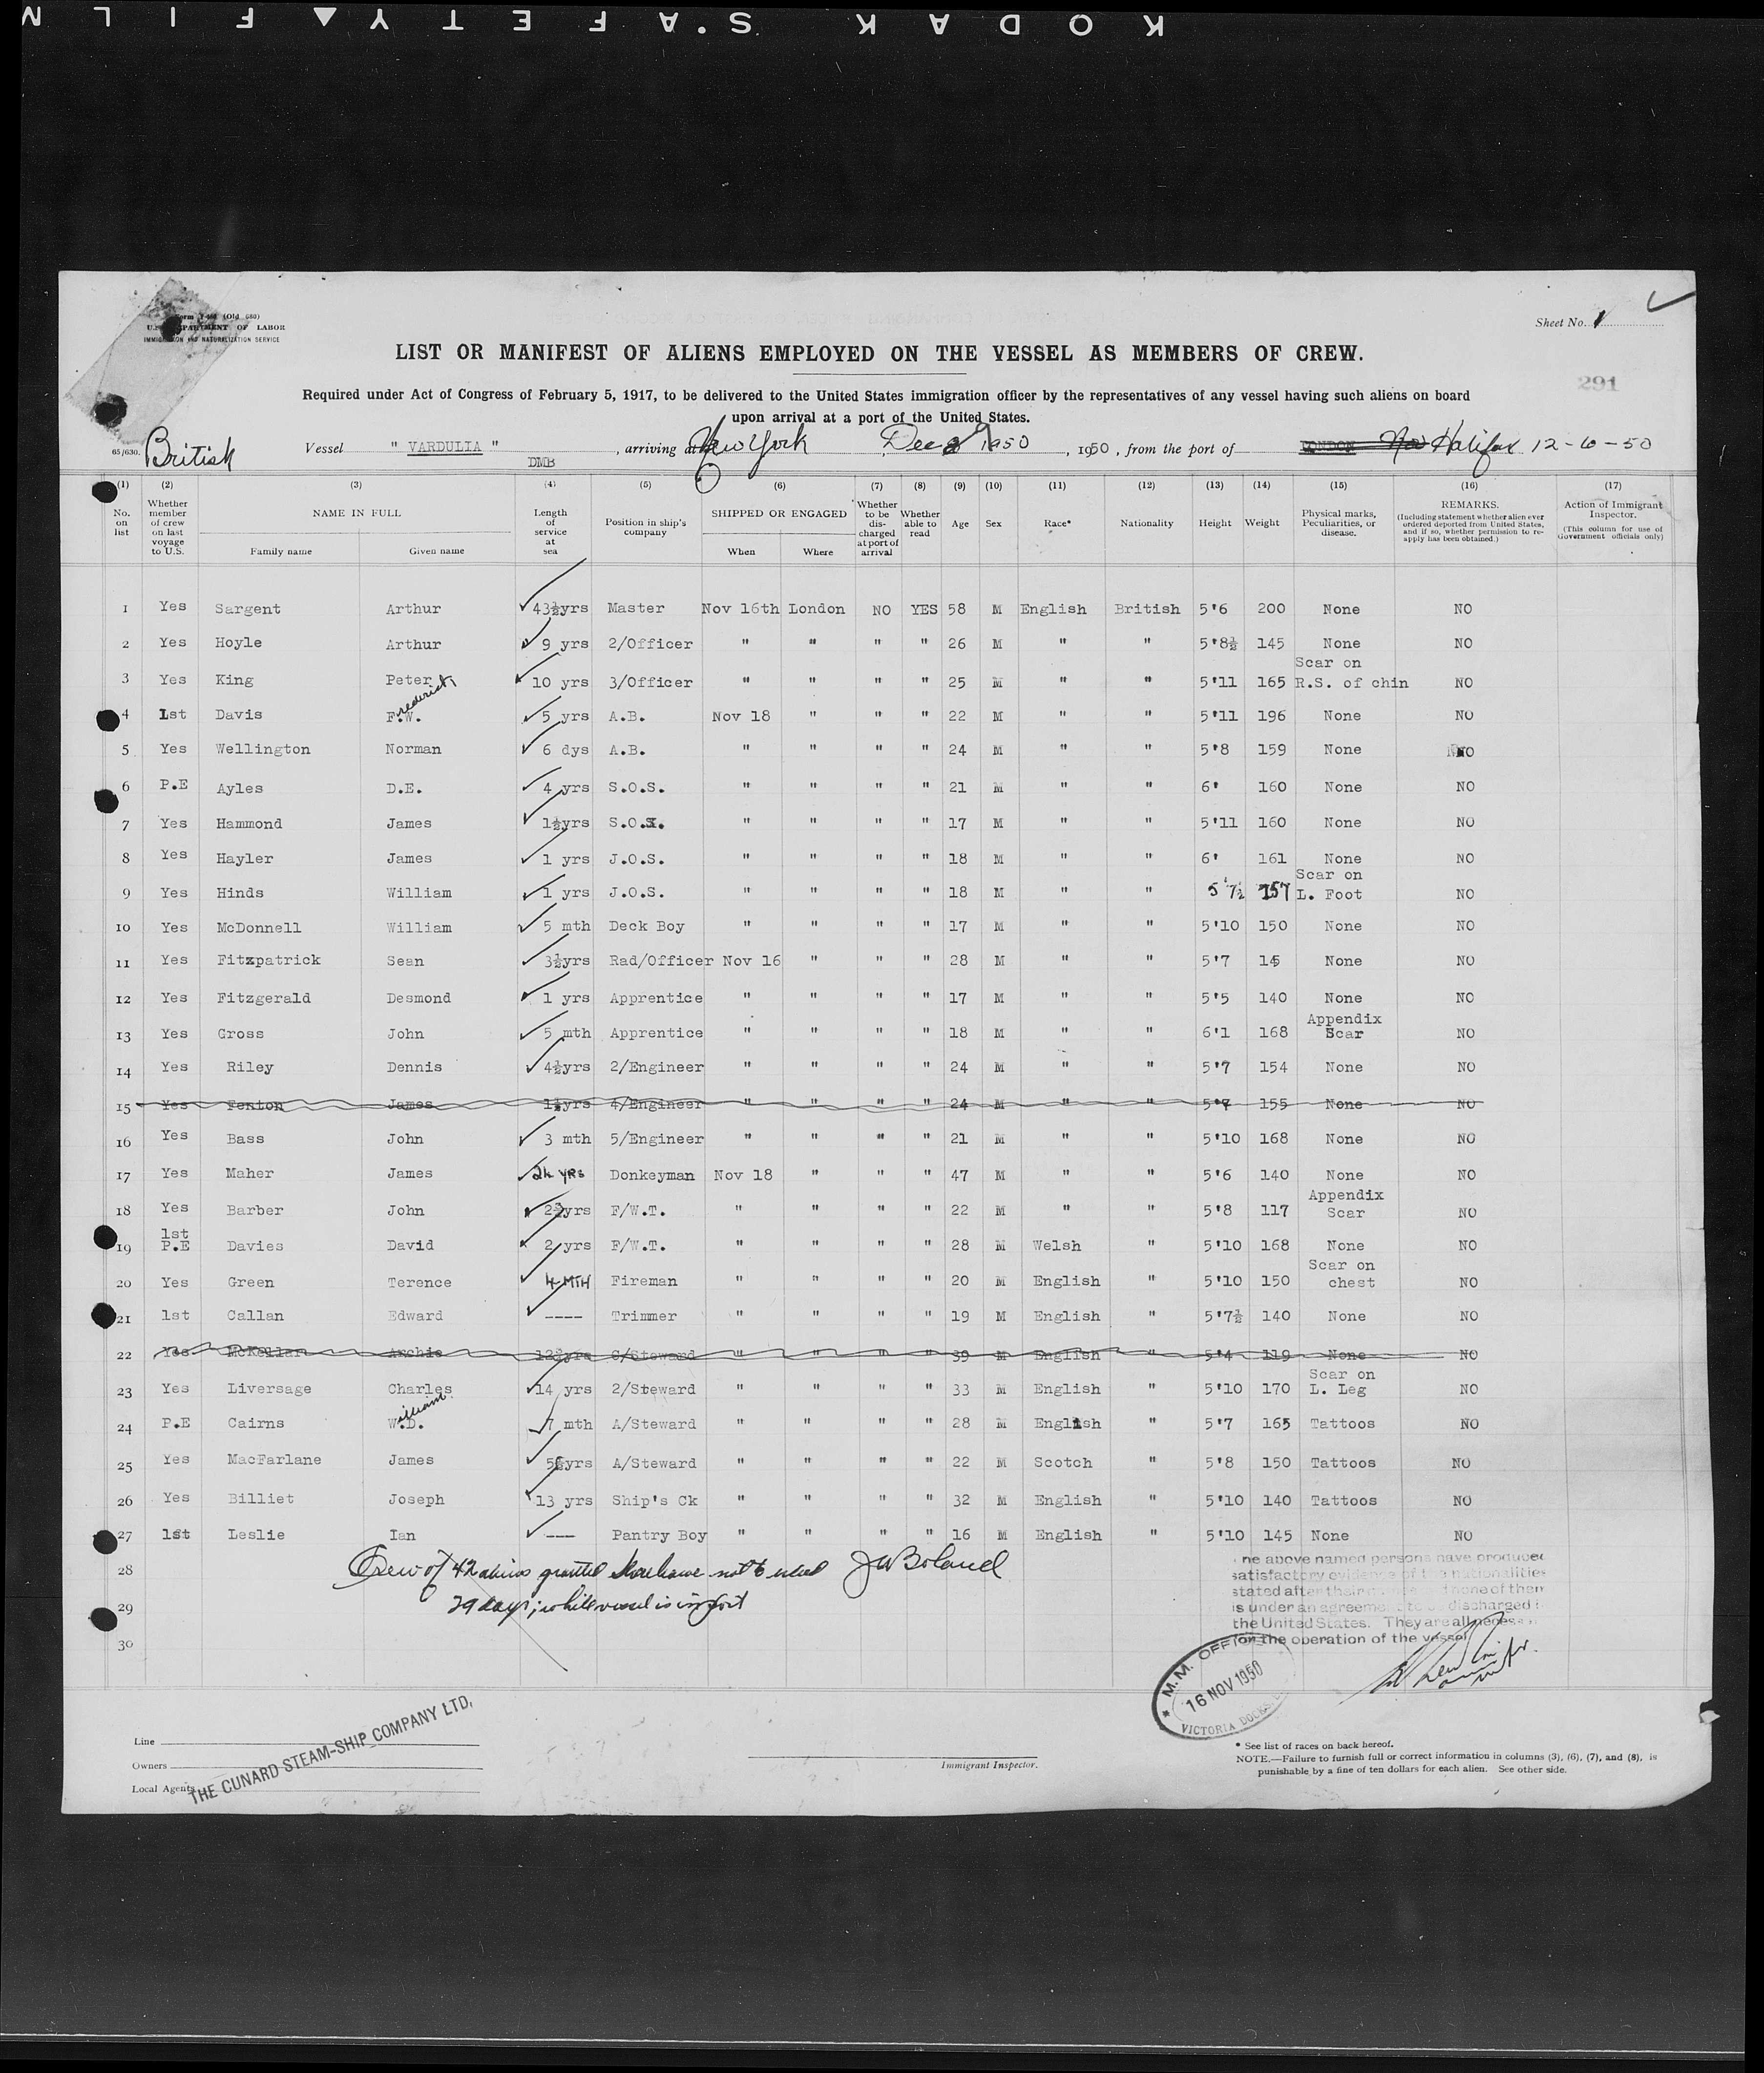 KODAK SAFETY FILM
Form I-468 (Old 680)
U.S. DEPARTMENT OF LABOR
IMMIGRATION AND NATURALIZATION SERVICE
Sheet No. 1
LIST OR MANIFEST OF ALIENS EMPLOYED ON THE VESSEL AS MEMBERS OF CREW.
291
Required under Act of Congress of February 5, 1917, to be delivered to the United States immigration officer by the representatives of any vessel having such aliens on board
upon arrival at a port of the United States.
65/630. British Vessel " VARDULIA " , arriving at New York Dec 9 1950 , 1950 , from the port of LONDON Halifax 12-6-50
DMB
(1) (2) (3) (4) (5) (6) (7) (8) (9) (10) (11) (12) (13) (14) (15) (16) (17)
No. on list Whether member of crew on last voyage to U.S. NAME IN FULL Family name Given name Length of service at sea Position in ship's company SHIPPED OR ENGAGED When Where Whether to be discharged at port of arrival Whether able to read Age Sex Race* Nationality Height Weight Physical marks, Peculiarities, or disease. REMARKS. (Including statement whether alien ever ordered deported from United States, and if so, whether permission to re-apply has been obtained.) Action of Immigrant Inspector. (This column for use of Government officials only)
1 Yes Sargent Arthur 43½yrs Master Nov 16th London NO YES 58 M English British 5'6 200 None NO
2 Yes Hoyle Arthur 9 yrs 2/Officer " " " " 26 M " " 5'8½ 145 None NO
3 Yes King Peter 10 yrs 3/Officer " " " " 25 M " " 5'11 165 Scar on R.S. of chin NO
4 1st Davis F.W. rederick 5 yrs A.B. Nov 18 " " " 22 M " " 5'11 196 None NO
5 Yes Wellington Norman 6 dys A.B. " " " " 24 M " " 5'8 159 None NO
6 P.E Ayles D.E. 4 yrs S.O.S. " " " " 21 M " " 6' 160 None NO
7 Yes Hammond James 1½yrs S.O.S. " " " " 17 M " " 5'11 160 None NO
8 Yes Hayler James 1 yrs J.O.S. " " " " 18 M " " 6' 161 None NO
9 Yes Hinds William 1 yrs J.O.S. " " " " 18 M " " 5'7½ 157 Scar on L. Foot NO
10 Yes McDonnell William 5 mth Deck Boy " " " " 17 M " " 5'10 150 None NO
11 Yes Fitzpatrick Sean 3½yrs Rad/Officer Nov 16 " " " 28 M " " 5'7 145 None NO
12 Yes Fitzgerald Desmond 1 yrs Apprentice " " " " 17 M " " 5'5 140 None NO
13 Yes Gross John 5 mth Apprentice " " " " 18 M " " 6'1 168 Appendix Scar NO
14 Yes Riley Dennis 4½yrs 2/Engineer " " " " 24 M " " 5'7 154 None NO
15 Yes Fenton James 1½yrs 4/Engineer " " " " 24 M " " 5'7 155 None NO
16 Yes Bass John 3 mth 5/Engineer " " " " 21 M " " 5'10 168 None NO
17 Yes Maher James 24 YRS Donkeyman Nov 18 " " " 47 M " " 5'6 140 None NO
18 Yes Barber John 2½yrs F/W.T. " " " " 22 M " " 5'8 117 Appendix Scar NO
19 1st P.E Davies David 2 yrs F/W.T. " " " " 28 M Welsh " 5'10 168 None NO
20 Yes Green Terence 4 MTH Fireman " " " " 20 M English " 5'10 150 Scar on chest NO
21 1st Callan Edward ---- Trimmer " " " " 19 M English " 5'7½ 140 None NO
22 Yes McKellar Archie 12½yrs C/Steward " " " " 39 M English " 5'4 119 None NO
23 Yes Liversage Charles 14 yrs 2/Steward " " " " 33 M English " 5'10 170 Scar on L. Leg NO
24 P.E Cairns W.D. illiam 7 mth A/Steward " " " " 28 M English " 5'7 165 Tattoos NO
25 Yes MacFarlane James 5½yrs A/Steward " " " " 22 M Scotch " 5'8 150 Tattoos NO
26 Yes Billiet Joseph 13 yrs Ship's Ck " " " " 32 M English " 5'10 140 Tattoos NO
27 1st Leslie Ian --- Pantry Boy " " " " 16 M English " 5'10 145 None NO
28 Crew of 42 aliens granted shore leave not to exceed JW Boland
29 29 days; while vessel is in port
30
ne above named persons have produced
satisfactory evidence of the nationalities
stated after their and none of them
is under an agreement to be discharged i
the United States. They are all necess
for the operation of the vessel
M.M. OFFICE
16 NOV 1950
VICTORIA DOCKS
Line
Owners
Local Agents
THE CUNARD STEAM-SHIP COMPANY LTD,
Immigrant Inspector.
* See list of races on back hereof.
NOTE.—Failure to furnish full or correct information in columns (3), (6), (7), and (8), is
punishable by a fine of ten dollars for each alien. See other side.